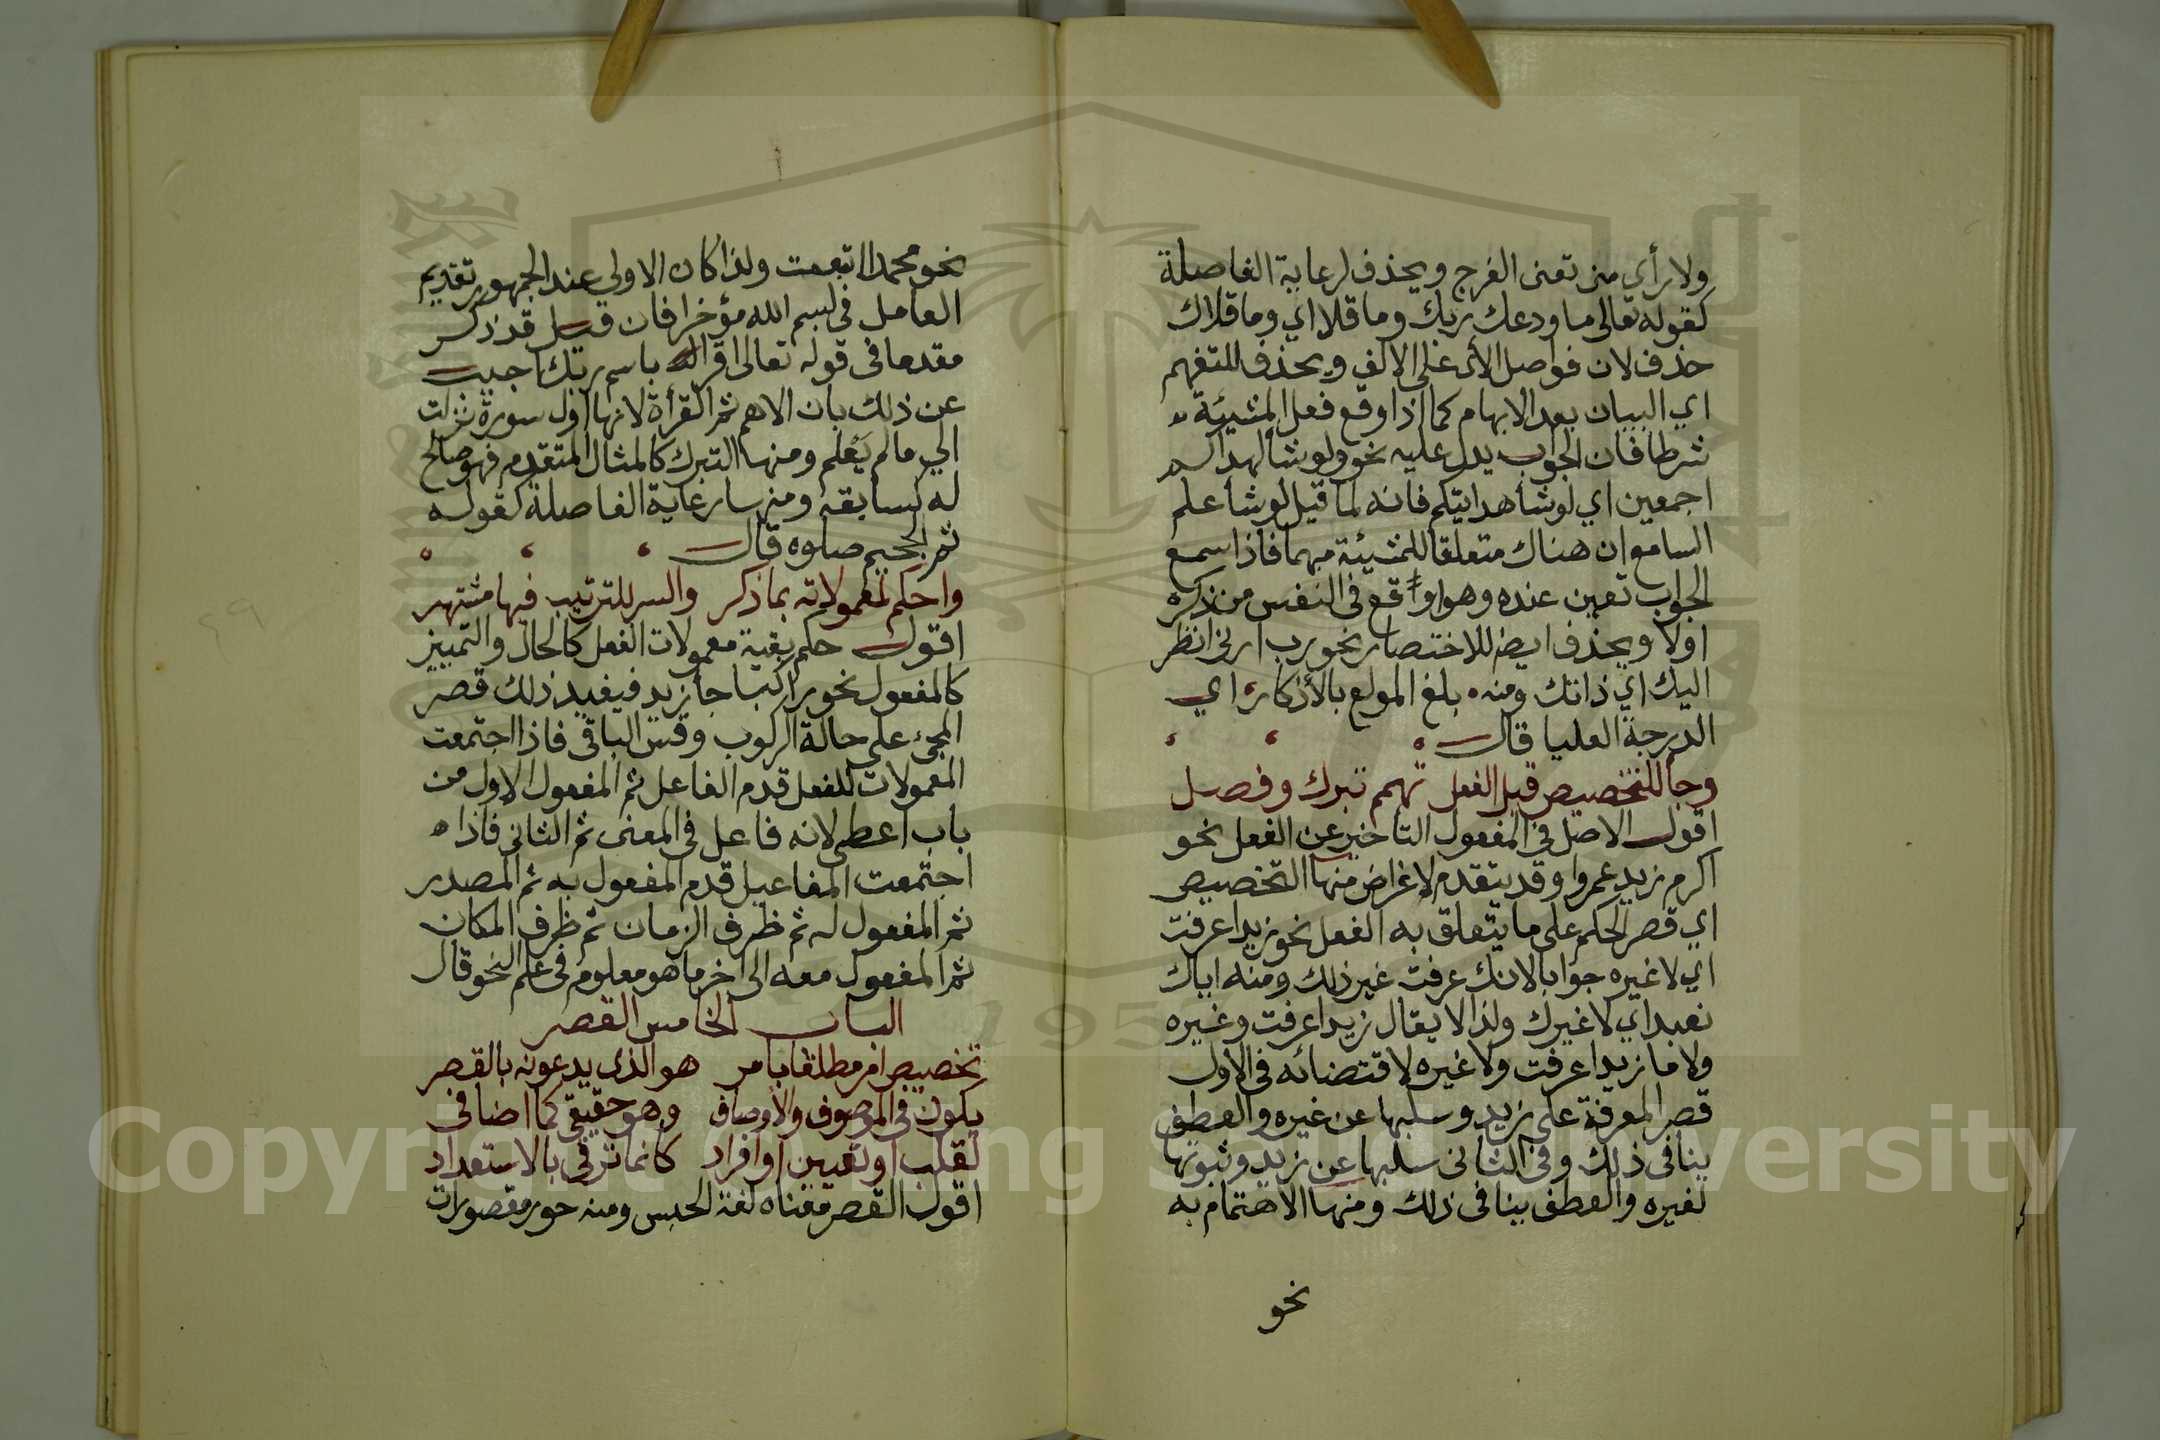 ولا رأي مني تعني الفرج ويحذف لرعاية الفاصلة
كقوله تعالى ما ودعك ربك وما قلا اي وما قلاك
حذف لان فواصل الآي على الالف ويحذف للتفهم
اي البيان بعد الابهام كما اذا وقع فعل المشيئة
شرطا فان الجواب يدل عليه نحو ولو شا لهداكم
اجمعين اي لو شأ هدايتكم فانه لما قيل لو شأ علم
السامع ان هناك متعلقا للمشيئة مبهما فاذا سمع
الجواب تعين عنده وهو اوقع في النفس من ذكره
اولا ويحذف ايضا للاختصار نحو رب ارني انظر
اليك اي ذاتك ومنه بلغ المولع بالأذكار اي
الدرجة العليا قال
وجا للتخصيص قبل الفعل تهمم تبرك وفصل
اقول الاصل في المفعول التأخير عن الفعل نحو
اكرم زيد عمروا وقد يتقدم لاغراض منها التخصيص
اي قصر الحكم على ما يتعلق به الفعل نحو زيدا عرفت
اي لا غيره جوابا لانك عرفت غير ذلك ومنه اياك
نعبد اي لا غيرك ولذا لا يقال زيدا عرفت وغيره
ولا ما زيدا عرفت ولا غيره لاقتضائه في الاول
قصر المعرفة على زيد وسلبها عن غيره والعطف
ينافي ذلك وفي الثاني سلبها عن زيد وثبوتها
لغيره والعطف ينافي ذلك ومنها الاهتمام به
نحو
نحو محمدا اتبعت ولذا كان الاولي عند الجمهور تقديم
العامل في بسم الله مؤخرا فان قيل قد ذكر
مقدما في قوله تعالى اقرا باسم ربك اجيب
عن ذلك بان الاهم ثم القرأة لانها اول سورة نزلت
الي مالم يعلم ومنها التبرك كالمثال المتقدم فهو صالح
له كسابقه ومنها رعاية الفاصلة كقوله
ثم الجحيم صلوه قال
واحكم لمعمولاته بما ذكر والسر للترتيب فيها مشتهر
اقول حكم بقية معمولات الفعل كالحال والتمييز
كالمفعول نحو راكبا جأ زيد فيفيد ذلك قصر
المجئ على حالة الركوب وقس الباقي فاذا اجتمعت
المعمولات للفعل قدم الفاعل ثم المفعول الاول من
باب اعطى لانه فاعل في المعنى ثم الثاني فاذا
اجتمعت المفاعيل قدم المفعول به ثم المصدر
ثم المفعول له ثم ظرف الزمان ثم ظرف المكان
ثم المفعول معه الى اخر ما هو معلوم في علم النحو قال
الباب الخامس القصر
تخصيص امر مطلقا بامر هو الذي يدعونه بالقصر
يكون في الموصوف والأوصاف وهو حقيقي كما اضافي
لقلب او تعيين او افراد كانما ترقى بالاستعداد
اقول القصر معناه لغة الحبس ومنه حور مقصورات
Copyright © King Saud University
1957